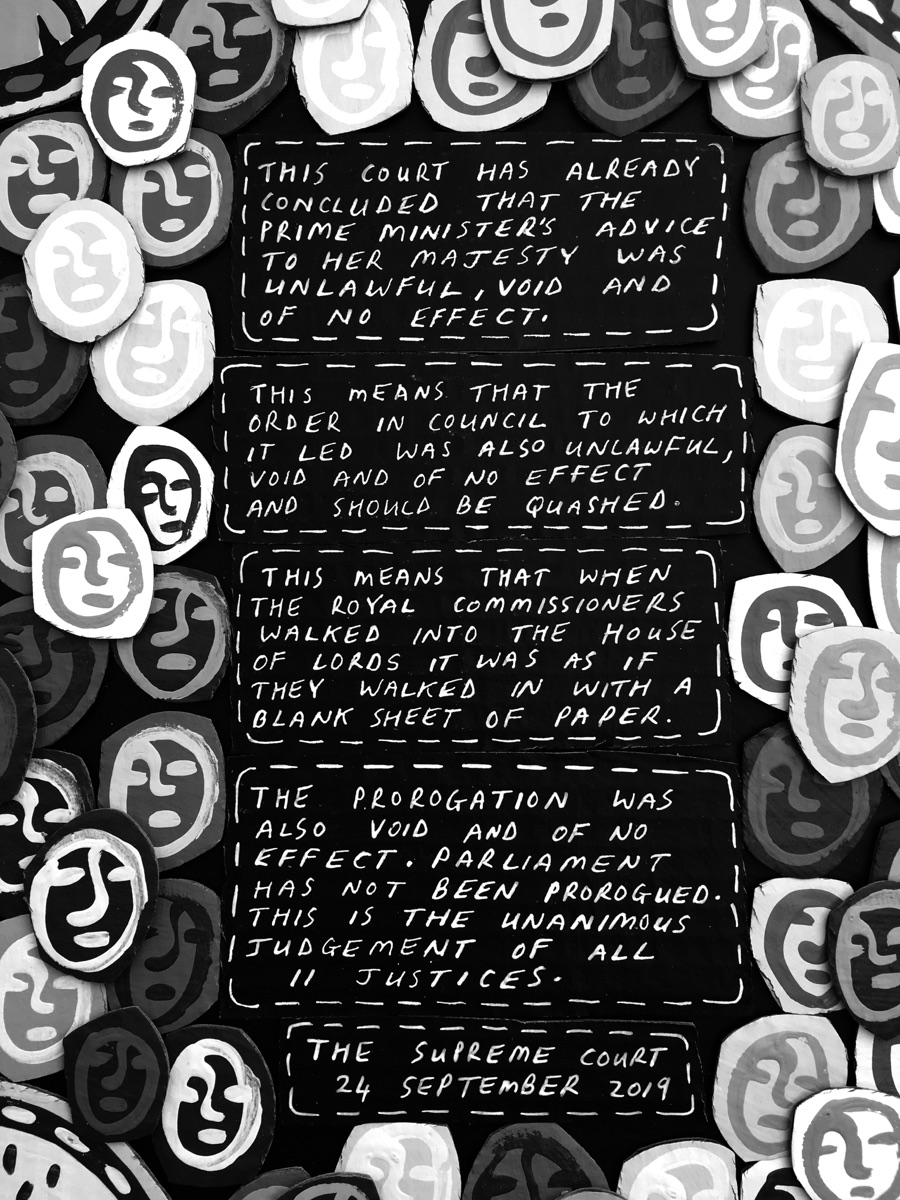 THIS COURT HAS ALREADY
CONCLUDED THAT THE
PRIME MINISTER'S ADVICE
TO HER MAJESTY WAS
UNLAWFUL, VOID AND
OF NO EFFECT.
THIS MEANS THAT THE
ORDER IN COUNCIL TO WHICH
IT LED WAS ALSO UNLAWFUL,
VOID AND OF NO EFFECT
AND SHOULD BE QUASHED.
THIS MEANS THAT WHEN
THE ROYAL COMMISSIONERS
WALKED INTO THE HOUSE
OF LORDS IT WAS AS IF
THEY WALKED IN WITH A
BLANK SHEET OF PAPER.
THE PROROGATION WAS
ALSO VOID AND OF NO
EFFECT. PARLIAMENT
HAS NOT BEEN PROROGUED.
THIS IS THE UNANIMOUS
JUDGEMENT OF ALL
11 JUSTICES.
THE SUPREME COURT
24 SEPTEMBER 2019